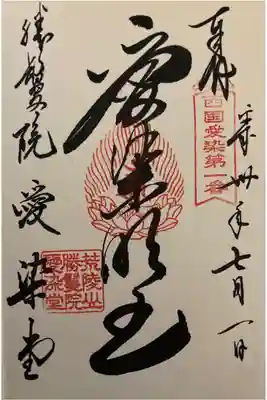 奉拝
西国愛染第一番
平成卅年七月一日
愛染明王
荒陵山
勝鬘院
愛染堂
勝鬘院 愛染堂